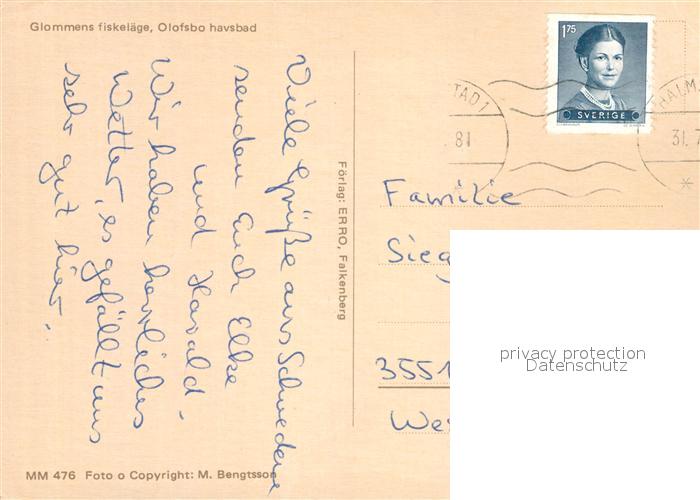 Glommens fiskeläge, Olofsbo havsbad
Viele Grüße aus Schweden
senden Euch Elke
und Harald.
Wir haben herrliches
Wetter, es gefällt uns
sehr gut hier.
MM 476 Foto o Copyright: M. Bengtsson
Förlag: ERRO, Falkenberg
175
SVERIGE
STAD 1
81
HALM
31.
Familie
Sieg
3551
We
privacy protection
Datenschutz